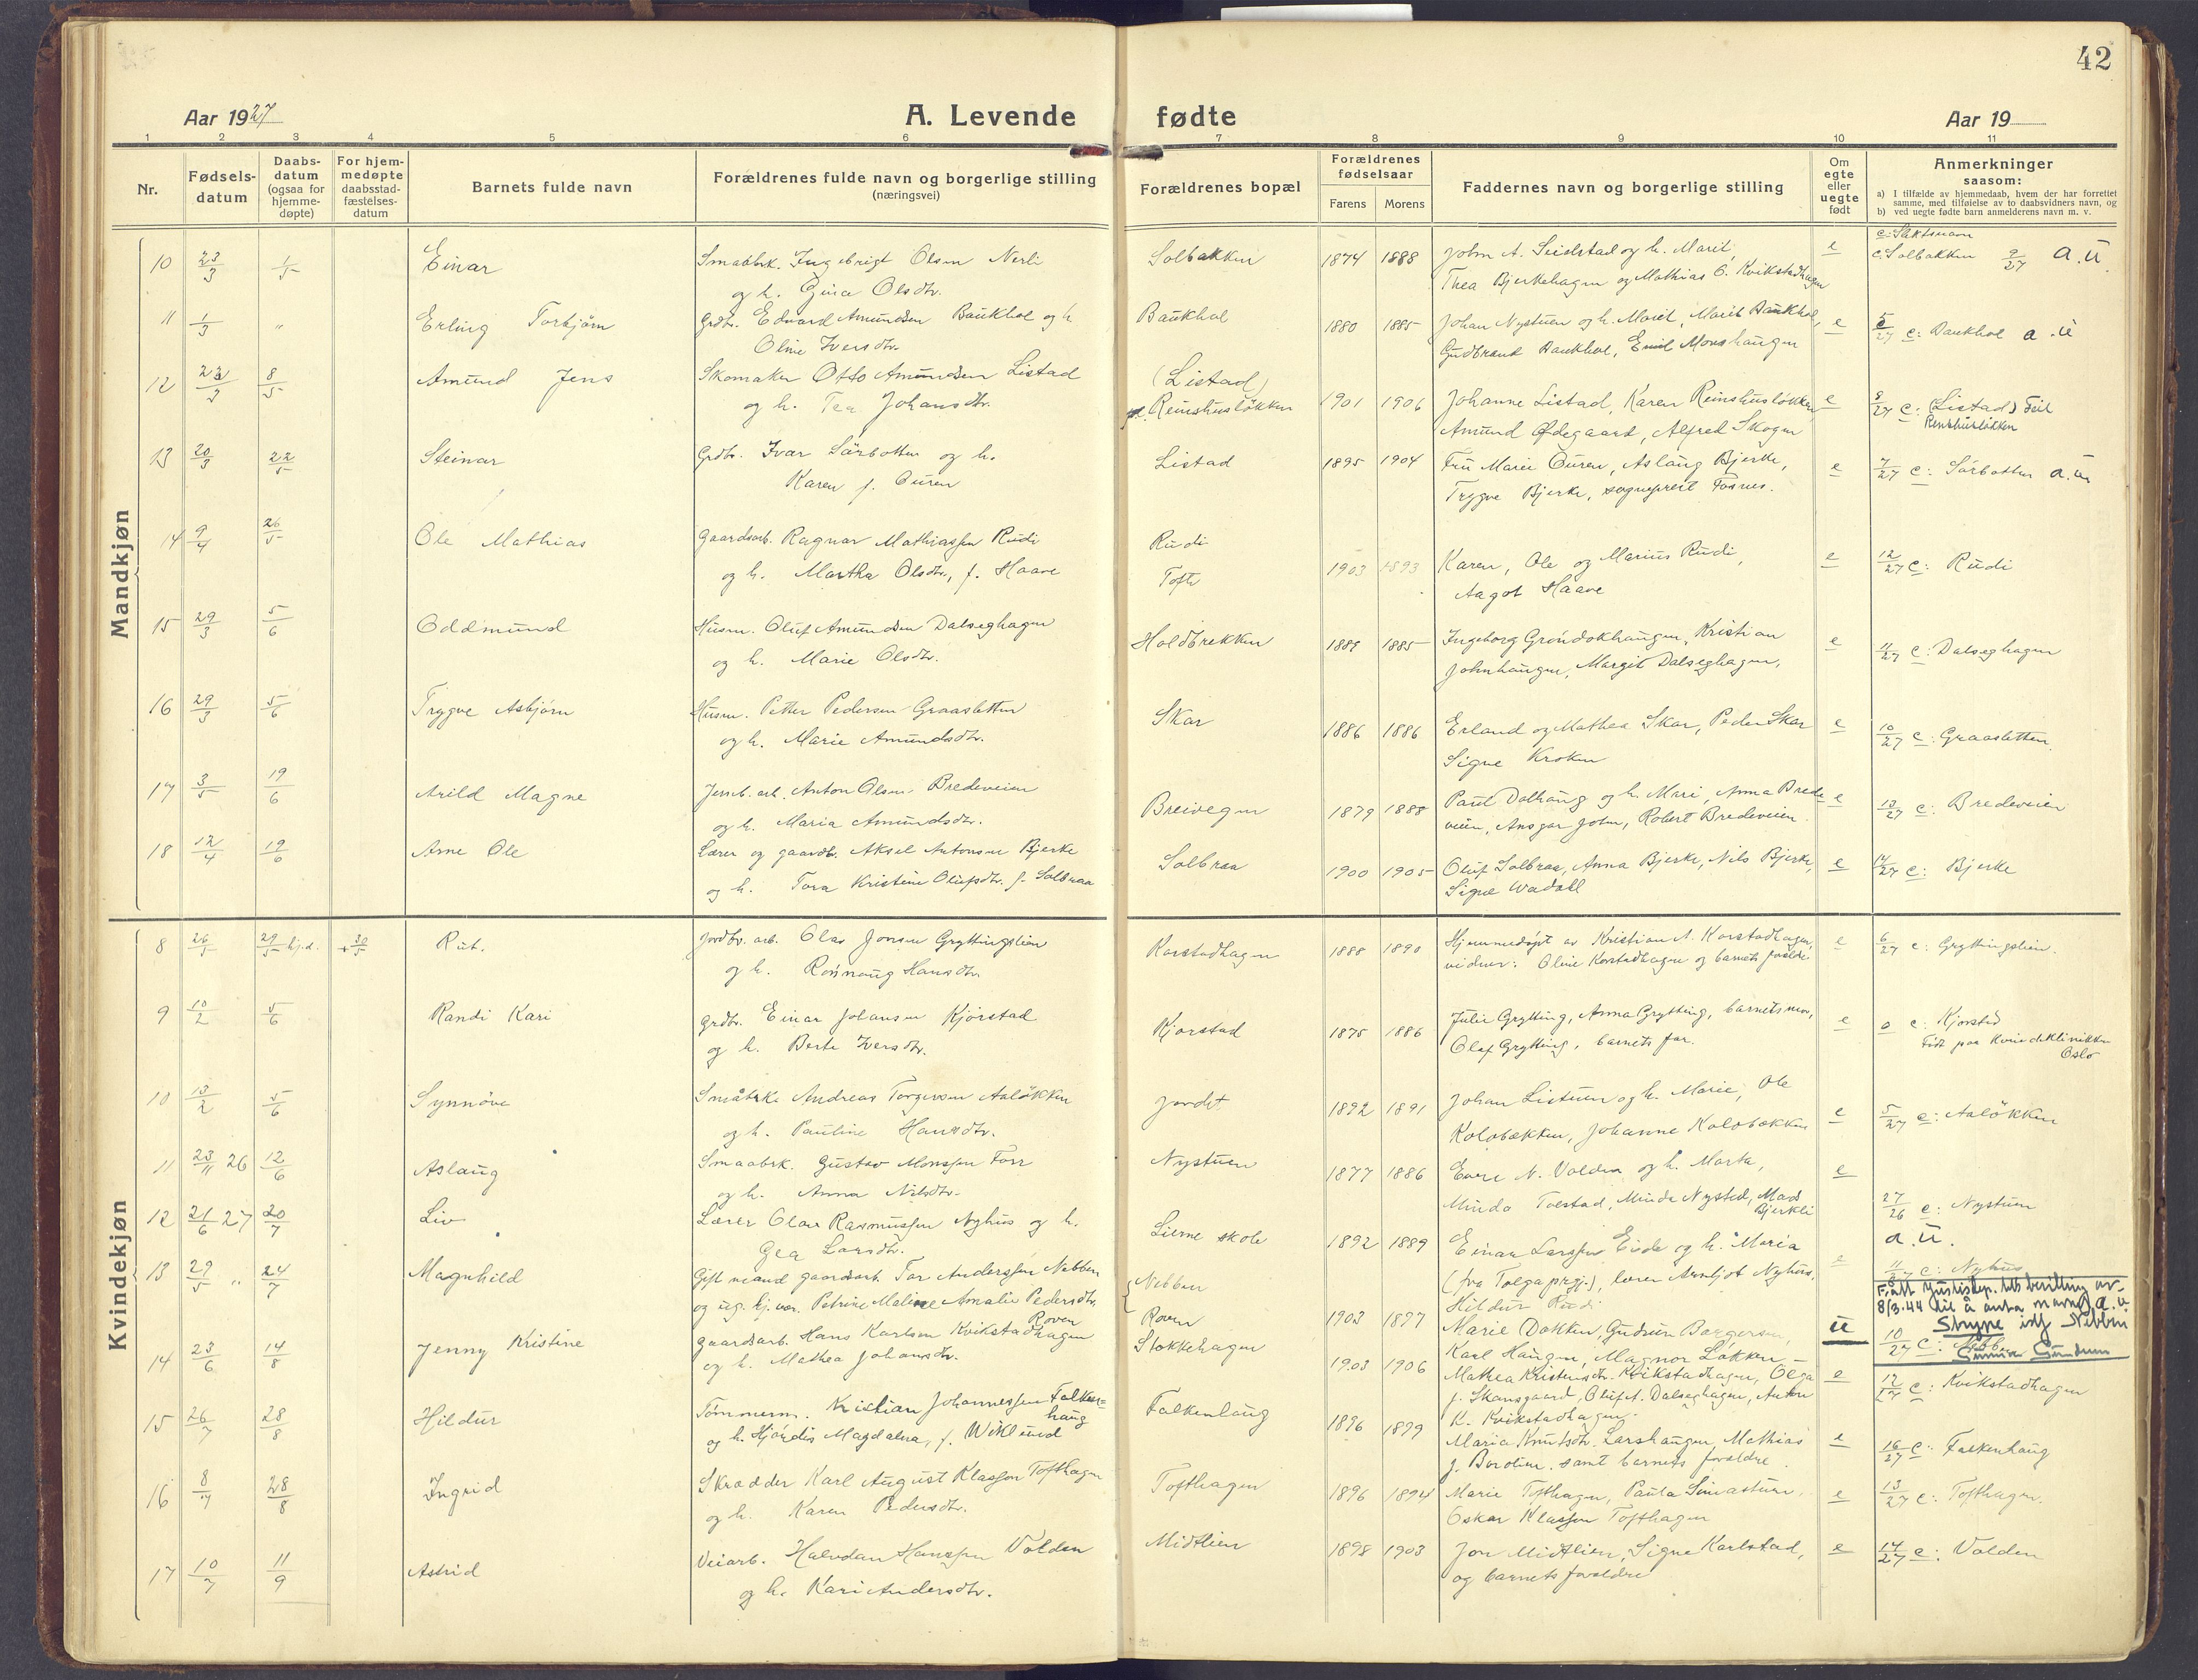 42
Aar 1927
A. Levende fødte
Aar 19
1 2 3 4 5 6 7 8 9 10 11
Nr.
Fødsels-
datum
Daabs-
datum
(ogsaa for
hjemme-
døpte)
For hjem-
medøpte
daabsstad-
fæstelses-
datum
Barnets fulde navn
Forældrenes fulde navn og borgerlige stilling
(næringsvei)
Forældrenes bopæl
Forældrenes
fødselsaar
Farens
Morens
Faddernes navn og borgerlige stilling
Om
egte
eller
uegte
født
Anmerkninger
saasom:
a) I tilfælde av hjemmedaab, hvem der har forrettet
samme, med tilføielse av to daabsvidners navn, og
b) ved uegte fødte barn anmelderens navn m. v.
Mandkjøn
10 23/3 1/5 Einar Smaabrk. Ingebrigt Olsen Nerli Solbakken 1874 1888 John A. Seielstad og h. Marit, e
og h. Gina Olsdtr. Thea Bjerkehagen og Mathias O. Kvikstadhagen
c: Solbakken 9/27 a.u.
11 1/3 " Erling Torbjørn Grdbr. Edvard Amundsen Baukhol og h. Baukhol 1880 1885 Johan Nystuen og h. Marit, Marit Baukhol, e 5/27 c: Baukhol a.u
Oline Iversdtr. Gudbrand Baukhol, Emil Monshaugen
12 8/5 Amund Jens Skomaker Otto Amundsen Listad (Listad)
og h. Tea Johansdtr. Reinshusløkken 1901 1906 Johanne Listad, Karen Reinshusløkken e 8/27 c: (Listad) Feil
Amund Ødegaard, Alfred Skogen Renshusløkken
13 20/3 22/5 Steinar Grdbr. Ivar Sørbotten og h. Listad 1895 1904 Fru Marie Ouren, Aslaug Bjerke, e 7/27 c: Sørbotten a.u
Karen f. Ouren Trygve Bjerke, sogneprest Fosnes.
14 9/4 26/5 Ole Mathias Gaardsarb. Ragnar Mathiassen Rudi Rudi
og h. Martha Olsdtr., f. Haave Tofte 1903 1893 Karen, Ole og Marius Rudi, e 12/27 c: Rudi
Aagot Haave
15 29/3 5/6 Oddmund Husm. Oluf Amundsen Dalseghagen Holdbrekken 1889 1885 Ingeborg Grøndokhaugen, Kristian e 11/27 c: Dalseghagen
og h. Marie Olsdtr. Johnhaugen, Margit Dalseghagen,
16 29/3 5/6 Trygve Asbjørn Husm. Petter Pedersen Graasletten Skar 1886 1886 Erland og Mathea Skar, Peder Skar e 10/27 c: Graasletten.
og h. Marie Amundsdtr. Signe Kroken
17 3/5 19/6 Arild Magne Jernb. arb. Anton Olsen Bredeveien Breivegen 1879 1888 Paul Dalhaug og h. Mari, Anna Brede- e 13/27 c: Bredeveien
og h. Maria Amundsdtr. veien, Ansgar John, Robert Bredeveien.
18 12/4 19/6 Arne Ole Lærer og gaardbr. Aksel Antonsen Bjerke Solbraa 1900 1905 Oluf Solbraa, Anna Bjerke, Nils Bjerke, e c: Bjerke
og h. Tora Kristine Olufsdtr. f. Solbraa Signe Wadahl
Kvindekjøn
8 26/5 29/5 hj.d. +30/5 Rut. Jordbr. arb. Olav Jonsen Gryttingslien Korstadhagen 1888 1890 Hjemmedøpt av Kristian A. Korstadhagen, e 6/27 c: Gryttingslien.
og h. Rønnaug Hansdtr. vidner: Oline Korstadhagen og barnets forældre
9 10/2 5/6 Randi Kari Grdbr. Einar Johansen Kjorstad Kjorstad 1875 1886 Julie Grytting, Anna Grytting, barnets mor, e o c: Kjorstad
og h. Berte Iversdtr. Olaf Grytting, barnets far. Født paa Kvindeklinikken
Oslo
10 13/2 5/6 Synnöve Småbrk. Andreas Torgersen Aaløkken Jordet 1892 1891 Johan Listuen og h. Marie, Ole e 5/27 c: Aaløkken
og h. Pauline Hansdtr. Kolobækken, Johanne Kolobækken
11 23/11 26 12/6 Aslaug Smaabrk. Gustav Monssen Forr Nystuen 1877 1886 Even N. Volden og h. Marta, e
og h. Anna Nilsdtr. Minda Toestad, Minda Nysted, Mads Bjerkli 27/26 c: Nystuen
a.u.
12 21/6 27 20/7 Liv Lærer Olav Rasmussen Nyhus og h. Lieme skole 1892 1889 Einar Larssen Eide og h. Maria e c: Nyhus
Gea Larsdtr. (fra Tolga prgj.), lærer Arnljot Nyhus, Hildur Rudi
13 29/5 " 24/7 Magnhild Gift mand gaardsarb. Tor Anderssen Nebben Nebben
og ug. hj. vær. Petrine Maline Amalie Pedersdtr. Roven Roven 1903 1897 Marie Dokken, Gudrun Borgersen, u 10/27 c:
Karl Haugen, Magnor Løkken
8/3.44 til å anta navnet a.u.
14 23/6 14/8 Jenny Kristine Gaardsarb. Hans Karlsen Kvikstadhagen Stokkehagen 1903 1906 Mathea Kristensdtr. Kvikstadhagen, Olga e 12/27 c: Kvikstadhagen
og h. Mathea Johansdtr. J. Skansgaard, Oluf A. Dalseghagen, Anton
K. Kvikstadhagen.
15 26/7 28/8 Hildur Tømmerm. Kristian Johannessen Falken= Falkenhaug 1896 1899 Maria Knutsdtr. Larshaugen, Mathias e 16/27 c: Falkenhaug
haug
og h. Hjørdis Magdalena, f. Wiklund samt barnets forældre.
16 8/7 28/8 Ingrid Skrædder Karl August Klassen Tofthagen Tofthagen 1896 1894 Marie Tofthagen, Paula Simastuen, e 13/27 c: Tofthagen.
og h. Karen Pedersdtr. Oskar Klassen Tofthagen
17 10/7 11/9 Astrid Veiarb. Halvdan Hanssen Volden Midtlien 1898 1903 Jon Midtlien, Signe Karlstad, e 14/27 c: Volden
og h. Kari Andersdtr. og barnets forældre